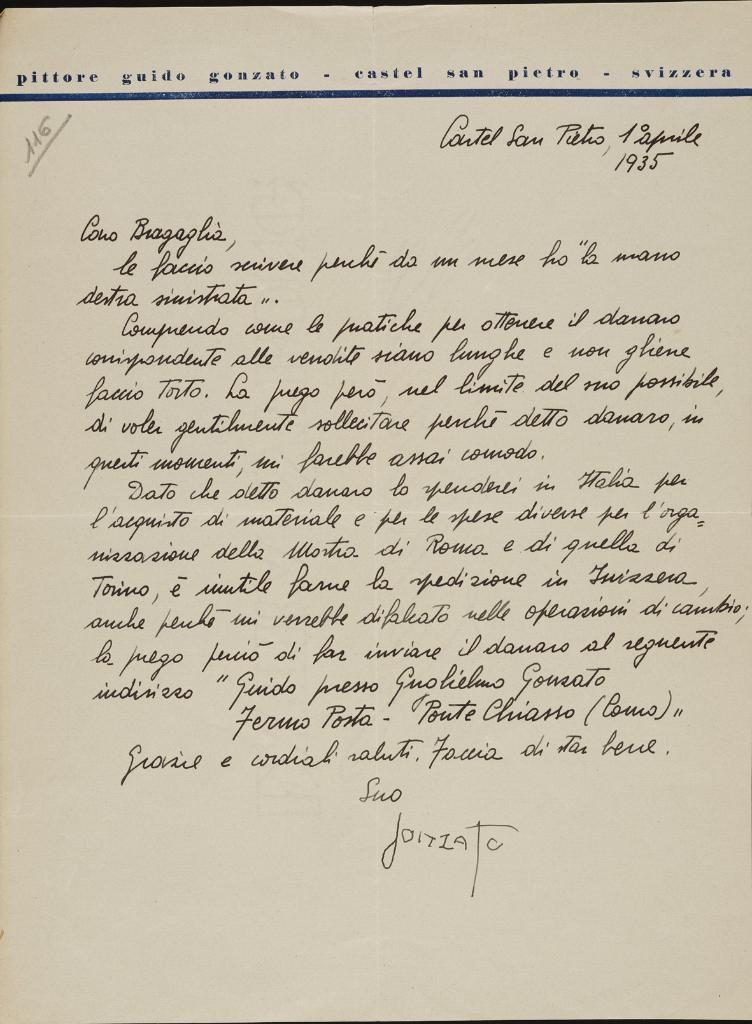 pittore guido gonzato - castel san pietro - svizzera
116
Castel San Pietro, 1° aprile
1935
Caro Bragaglia,
le faccio scrivere perchè da un mese ho "la mano
destra sinistrata".
Comprendo come le pratiche per ottenere il danaro
corrispondente alle vendite siano lunghe e non gliene
faccio torto. La prego però, nel limite del suo possibile,
di voler gentilmente sollecitare perchè detto danaro, in
questi momenti, mi farebbe assai comodo.
Dato che detto danaro lo spenderei in Italia per
l'acquisto di materiale e per le spese diverse per l'orga=
nizzazione della Mostra di Roma e di quella di
Torino, è inutile farne la spedizione in Isvizzera,
anche perchè mi verrebbe difalcato nelle operazioni di cambio;
la prego perciò di far inviare il danaro al seguente
indirizzo "Guido presso Guglielmo Gonzato
Fermo Posta - Ponte Chiasso (Como)"
Grazie e cordiali saluti. Faccia di star bene.
Suo
GONZATO